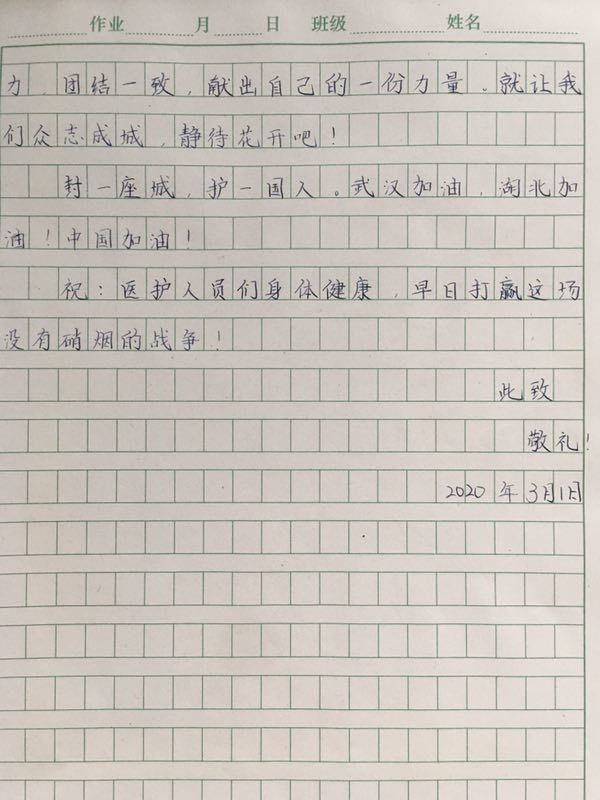 作业 月 日 班级 姓名
力，团结一致，献出自己的一份力量。就让我
们众志成城，静待花开吧！
封一座城，护一国人。武汉加油，湖北加
油！中国加油！
祝：医护人员们身体健康，早日打赢这场
没有硝烟的战争！
此致
敬礼！
2020年3月1日